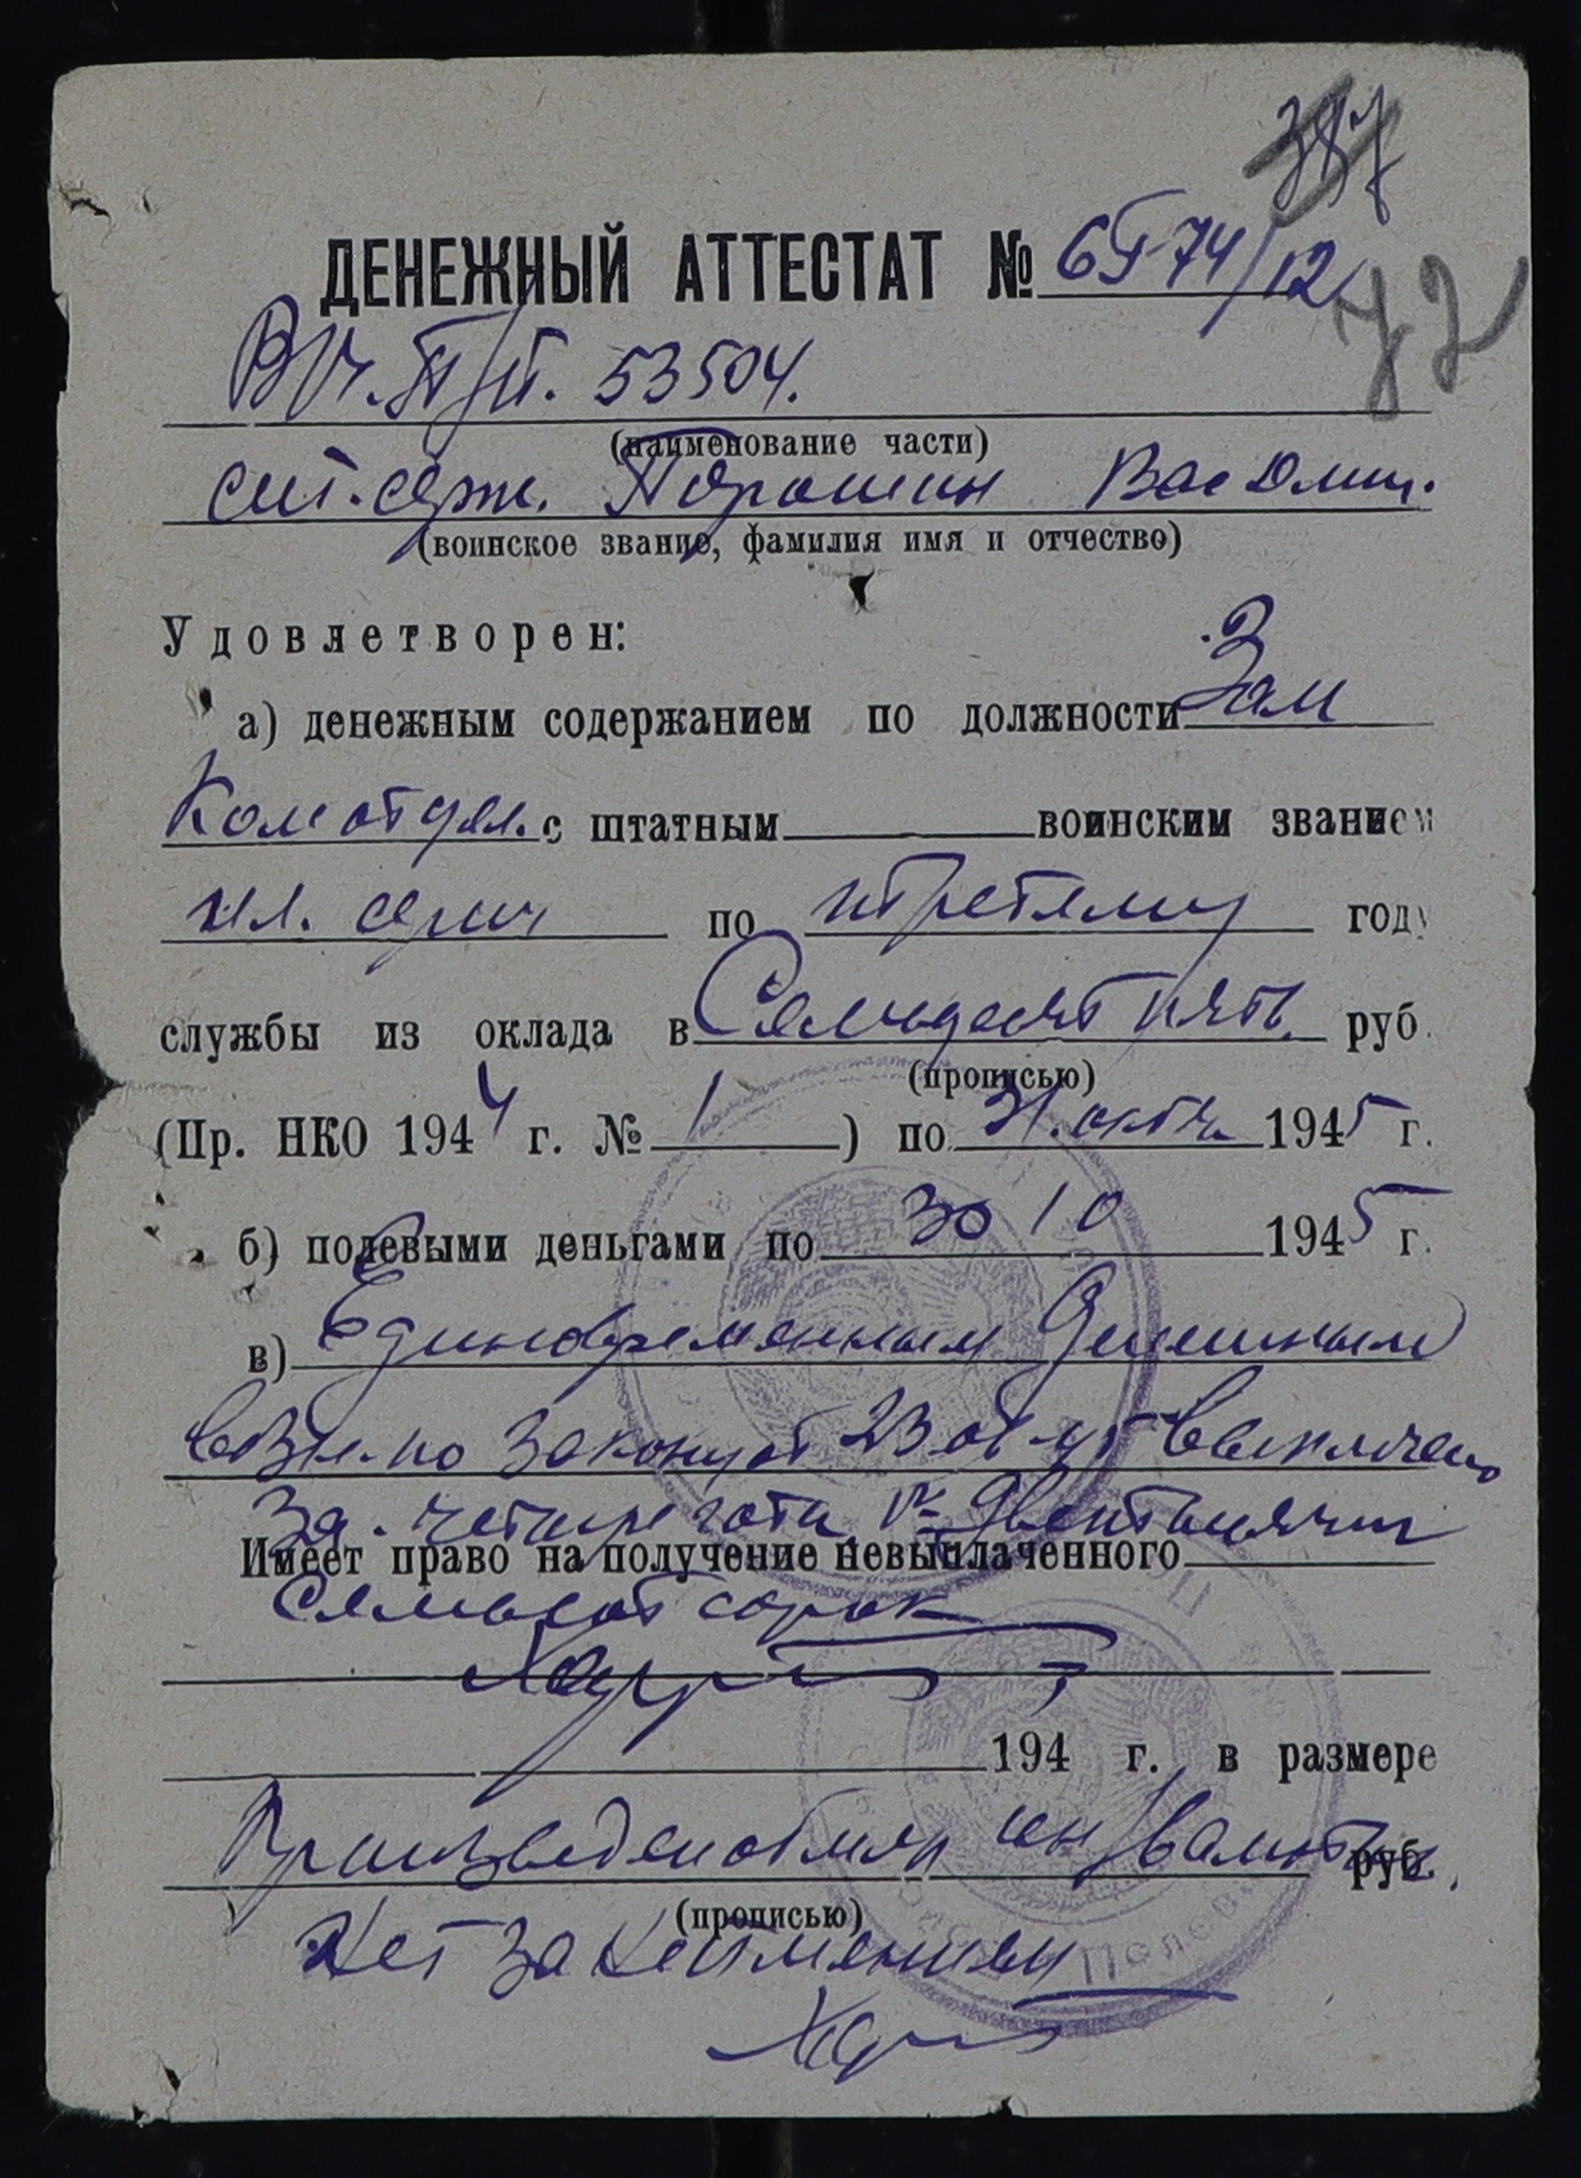 387
ДЕНЕЖНЫЙ АТТЕСТАТ №
72
53504.
(наименование части)
ст. серж. Порошин Вас Дмит.
(воинское звание, фамилия имя и отчество)
Удовлетворен:
а) денежным содержанием по должности Зам
Ком отдел. с штатным воинским званием
мл. серж по третьему году
службы из оклада в Семьдесят пять руб.
(прописью)
(Пр. НКО 1944 г. № 1 ) по 31 октяб 1945 г.
б) полевыми деньгами по 30 10 1945 г.
в) Единовременным денежным
возн. по закону от 23 выплачено
За четыре года двентысячи
Имеет право на получение невыплаченного
Семьсот сорок
194 г. в размере
Произведен обмен ин/валюты
руб.,
(прописью)
Полев